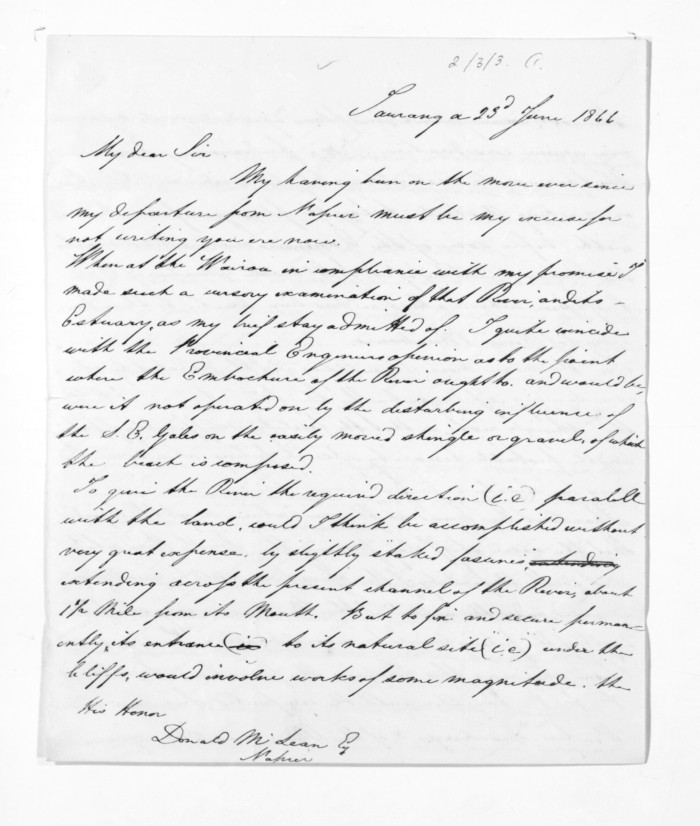 2/3/3. (1.
Tauranga 23d June 1866
My dear Sir
My having been on the move ever since
my departure from Napier must be my excuse for
not writing you ere now.
When at the Wairoa in compliance with my promise I
made such a cursory examination of that River, and its
Estuary, as my brief stay admitted of. I quite coincide
with the Provincial Engineers opinion as to the point
where the Embrochure of the River ought to. and would be,
were it not operated on by the disturbing influence of
the S. E. Gales on the easily moved shingle or gravel, of which
the beach is composed.
To give the River the required direction (i.e) paralell
with the land, could I think be accomplished without
very great expense. by slightly staked fasines, extending
extending across the present channel of the River, about
1½ Mile from its Mouth. But to fix and secure perman-
ently, its entrance (is to its natural site (i.e) under the
Cliffs, would involve works of some magnitude. the
His Honor
Donald McLean Esq
Napier